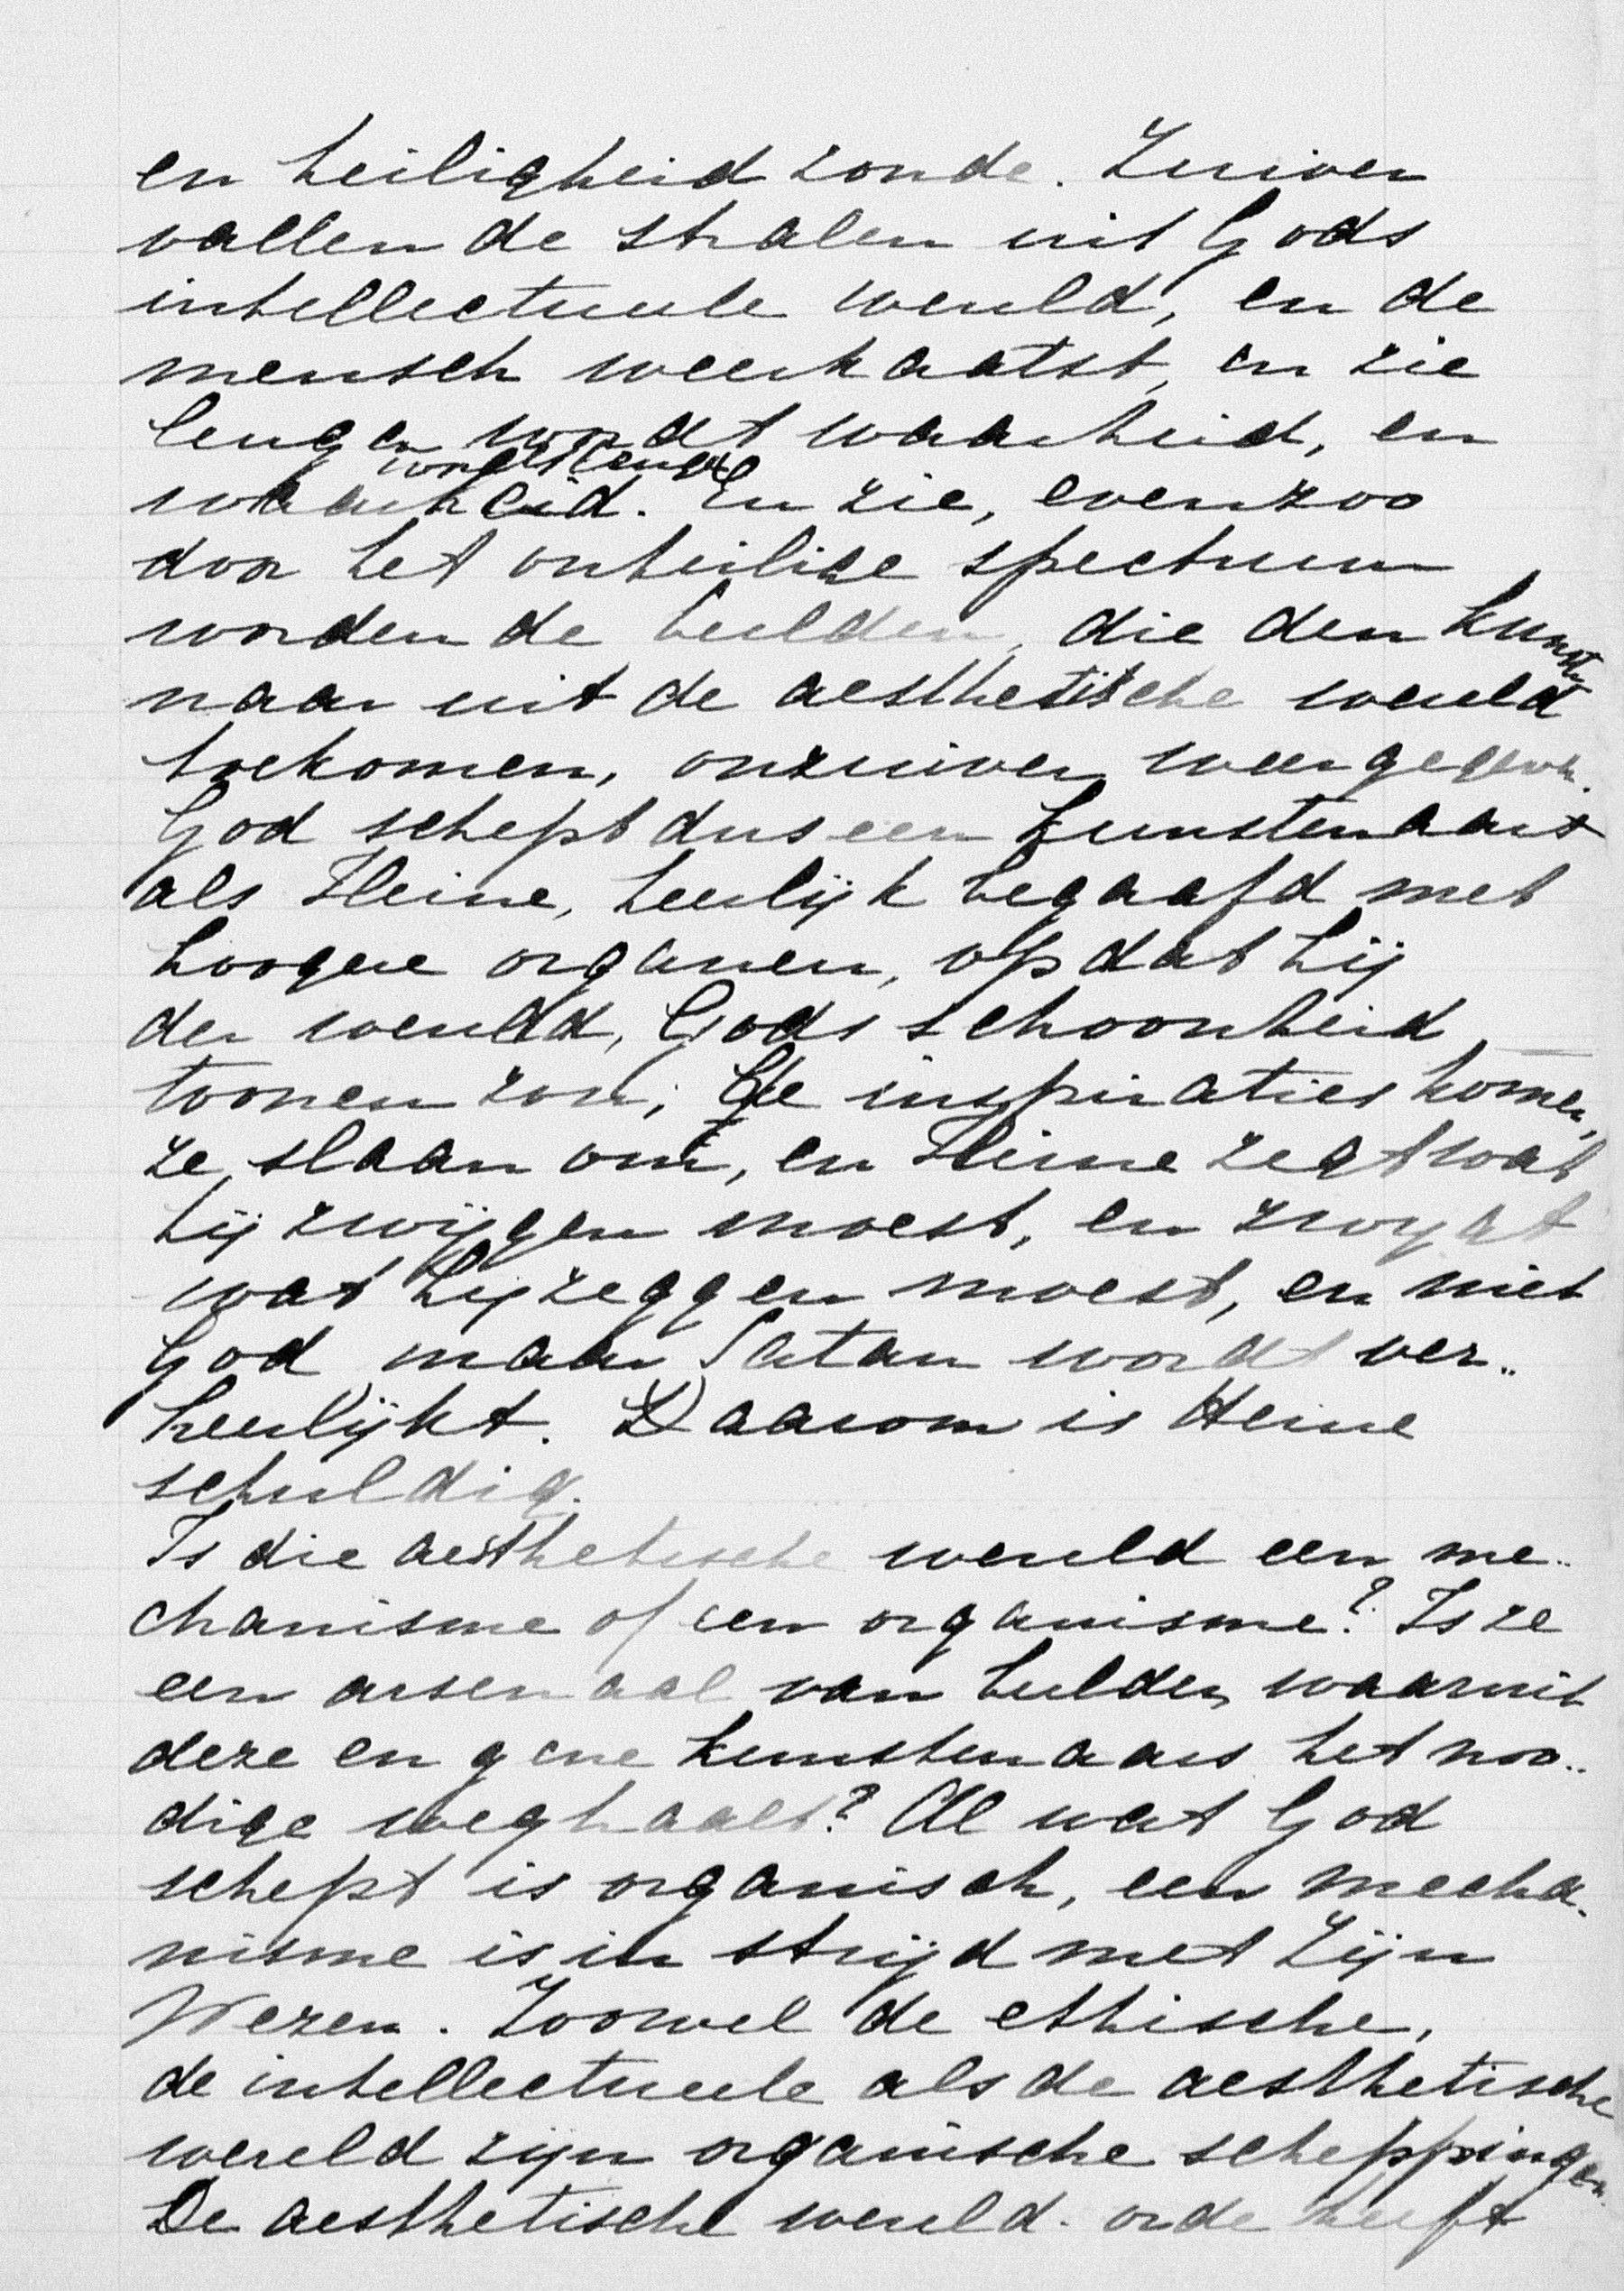 en heiligheid zonde. Zuiver
vallen de stralen uit Gods
intellectueele wereld, en de
mensch weerkaatst, en zie
leugen wordt waarheid, en
wordt leugen
waarheid. En zie, evenzoo
door het onheilige spectrum
worden de beelden, die den kunste
naar uit de aesthetische wereld
toekomen, onzuiver weergegeven.
God schept dus een kunstenaar
als Heine, heerlijk begaafd met
hoogere organen, opdat hij
der wereld, Gods schoonheid
toonen zou; De inspiraties komen,
ze slaan om, en Heine zegt wat
hij zwijgen moest, en zwijgt
wat hij zeggen moest, en niet
God maar Satan wordt ver..
heerlijkt. Daarom is Heine
schuldig.
Is die aesthetische wereld een me..
chanisme of een organisme? Is ze
een arsenaal van beelden waaruit
deze en gene kunstenaars het noo..
dige weghaalt? Al wat God
schept is organisch, een mecha.
nisme is in strijd met zijn
Wezen. Zoowel de ethische,
de intellectueele als de aesthetische
wereld zijn organische scheppingen.
De aesthetische wereld. orde heeft